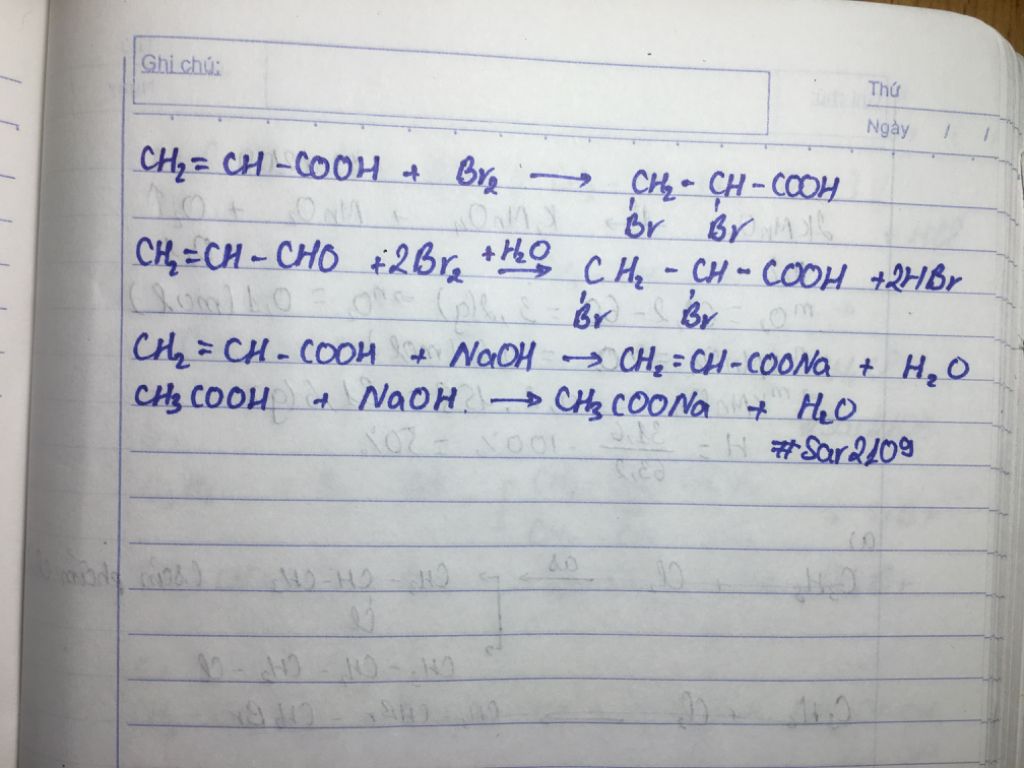 Ghi chú:
Thứ
Ngày / /
CH₂ = CH - COOH + Br₂ ⟶ CH₂ - CH - COOH
Br Br
CH₂ = CH - CHO + 2Br₂ +H₂O ⟶ CH₂ - CH - COOH + 2HBr
Br Br
CH₂ = CH - COOH + NaOH ⟶ CH₂ = CH - COONa + H₂O
CH₃COOH + NaOH ⟶ CH₃COONa + H₂O
#Sar2109